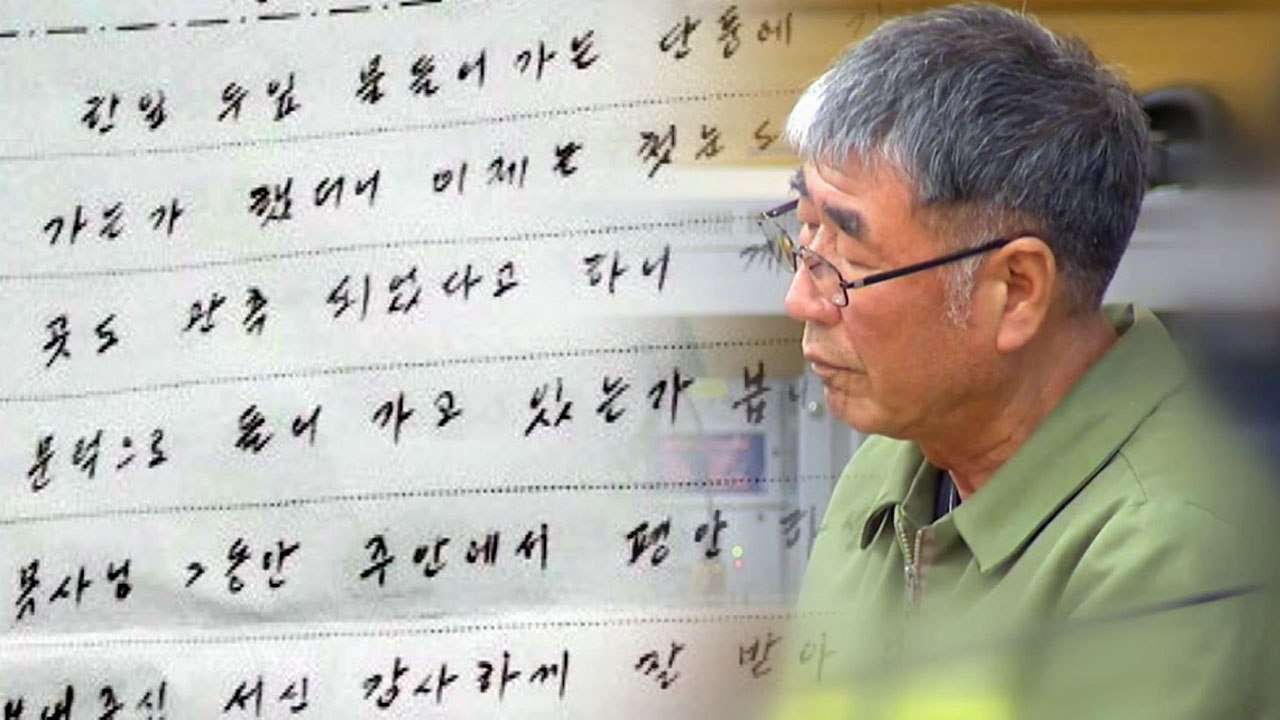 한잎 두잎 물들어가는 단풍에
가는가 했더니 이제는 첫눈
곳도 관측 되었다고 하니
문턱으로 들어 가고 있는가 봅니
목사님 그동안 주안에서 평안 하
보내주신 서신 감사하게 잘 받아